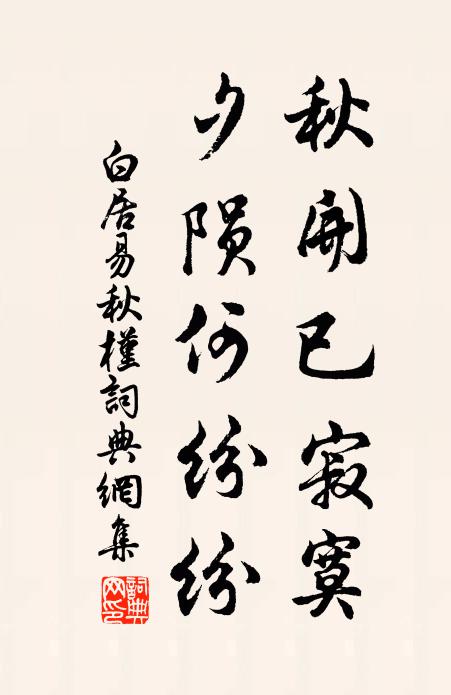 秋開已寂寞
夕隕何紛紛
白居易秋槿詞典網集
詞典網印